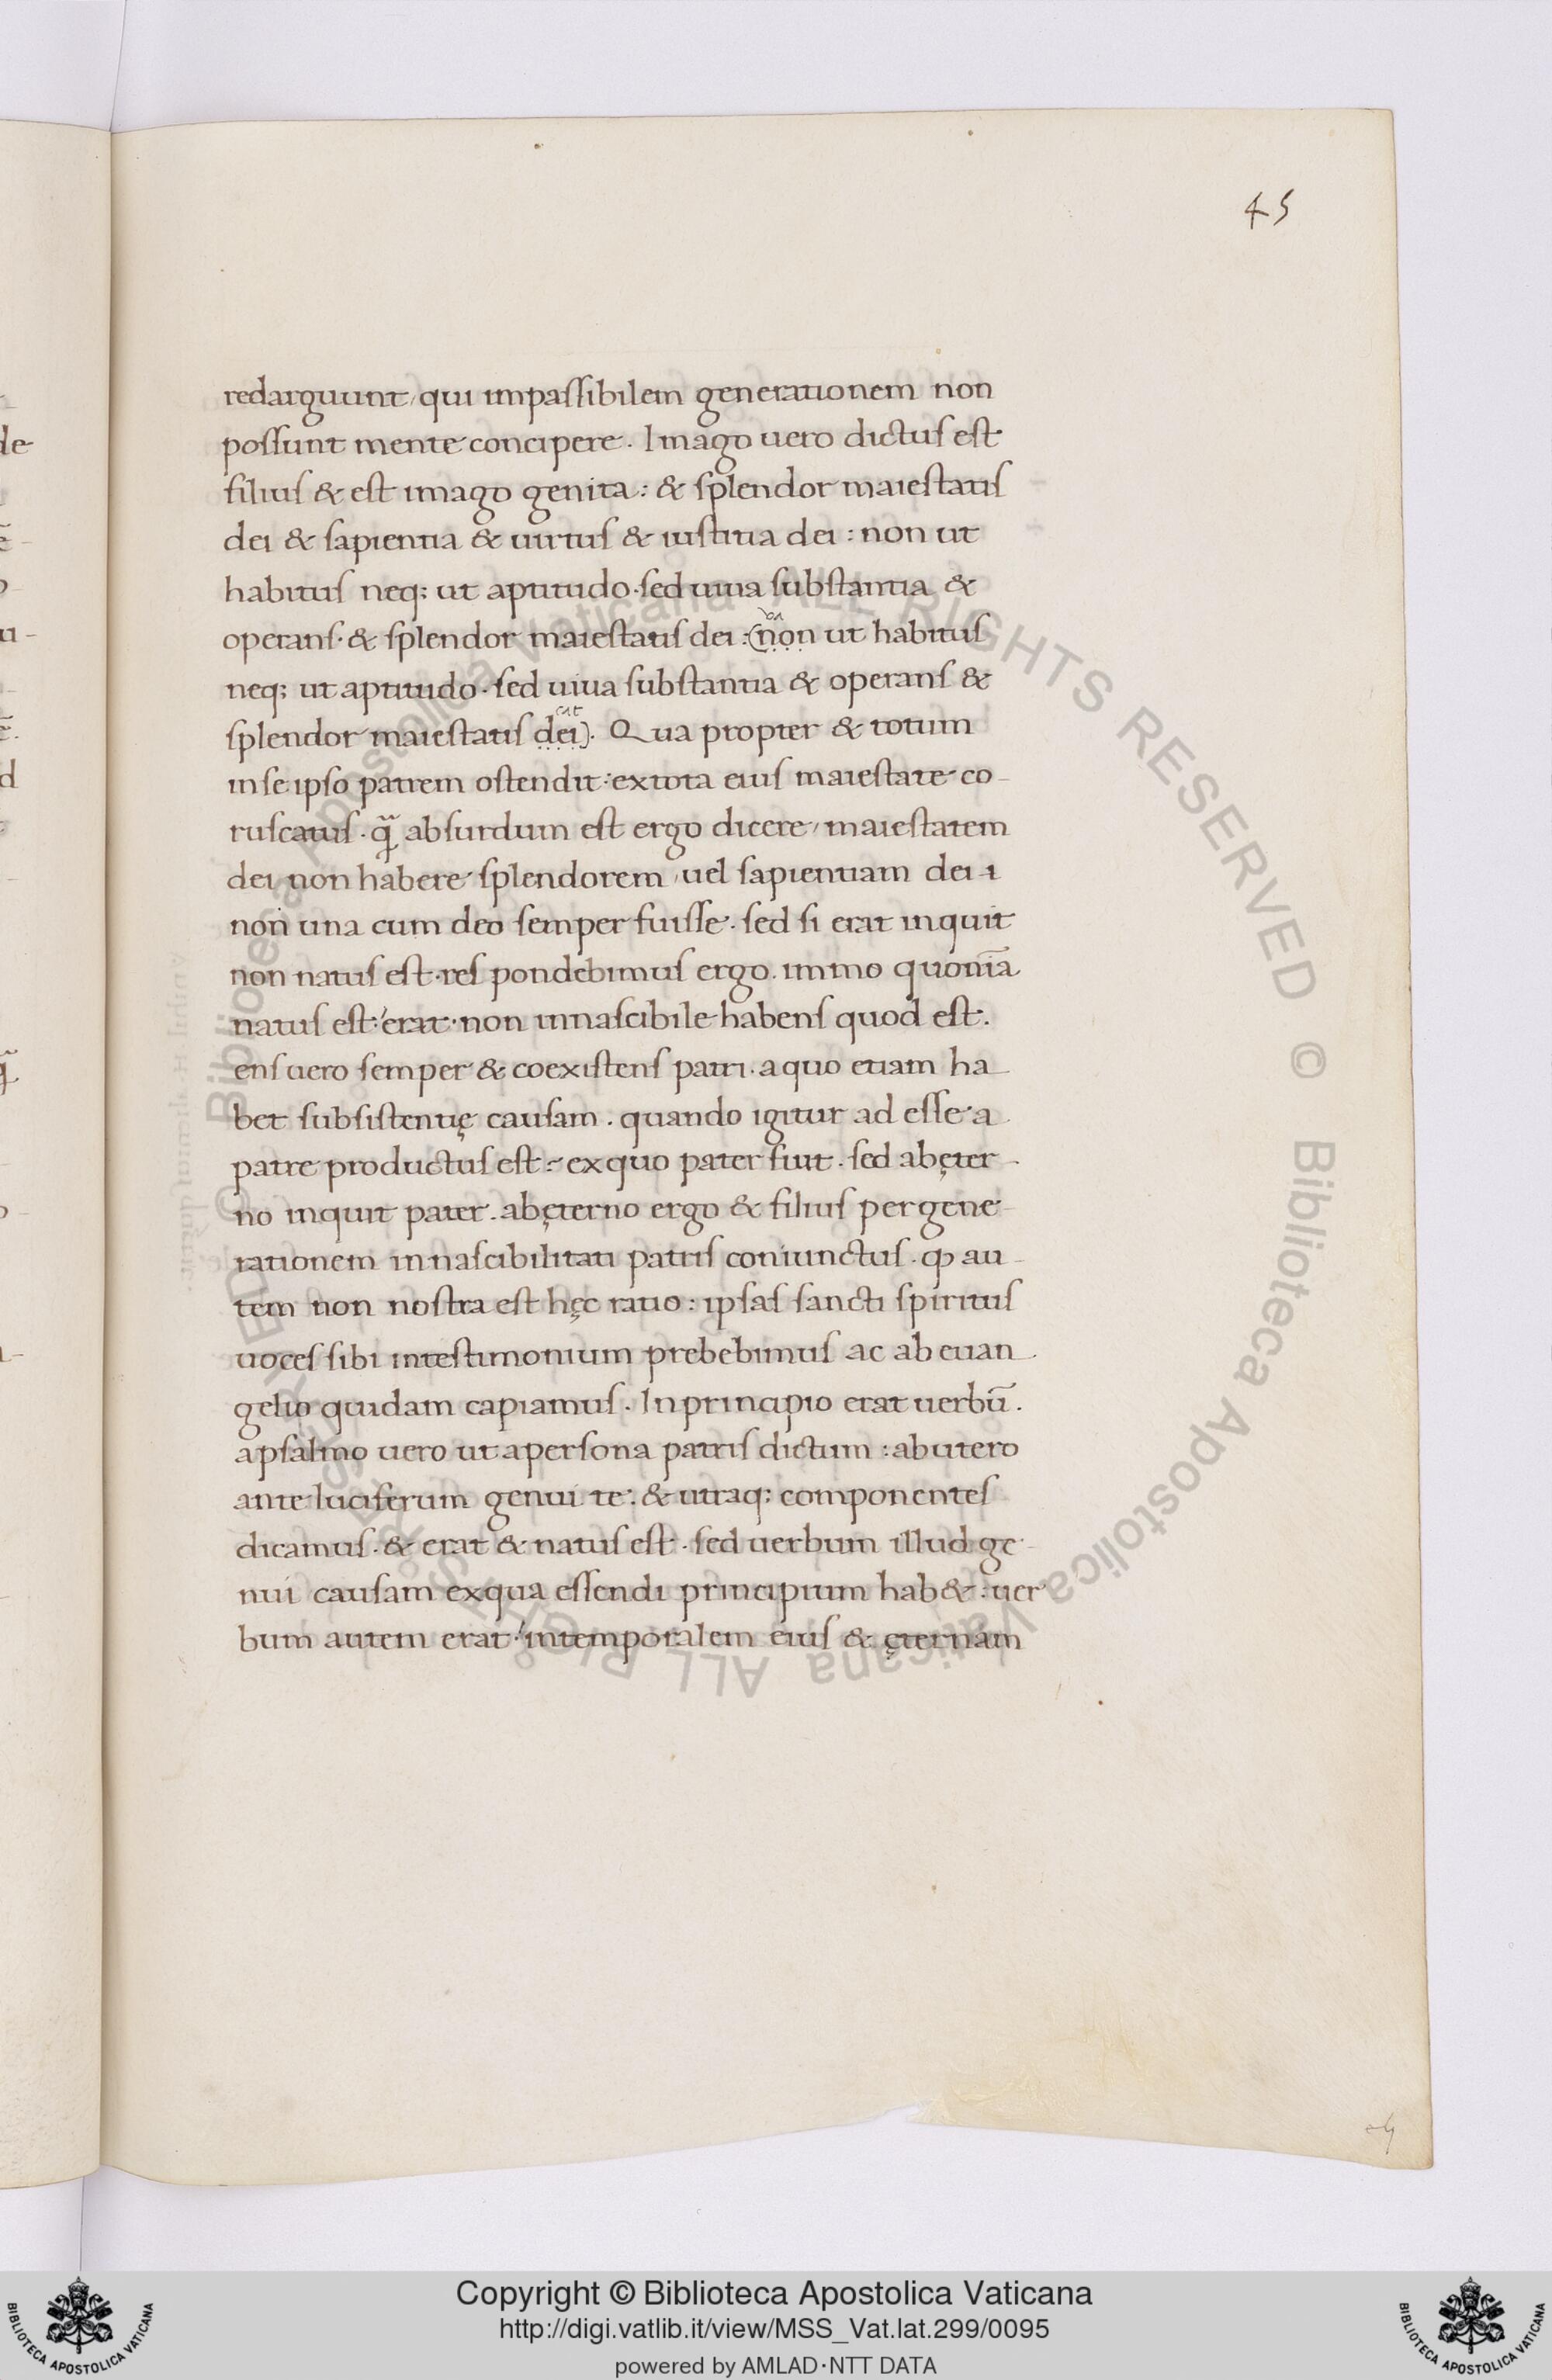 45
redarguunt, qui impassibilem generationem non
possunt mente concipere. Imago uero dictus est
filius & est imago genita: & splendor maiestatis
dei & sapientia & uirtus & iustitia dei: non ut
habitus neq; ut aptitudo. sed uiua substantia &
operans. & splendor maiestatis dei: (va non ut habitus
neq; ut aptitudo. sed uiua substantia & operans &
splendor maiestatis dei cat). Qua propter & totum
in se ipso patrem ostendit: ex tota eius maiestate co-
ruscatus. q̃ absurdum est ergo dicere, maiestatem
dei non habere splendorem, uel sapientiam dei
non una cum deo semper fuisse. sed si erat inquit
non natus est. respondebimus ergo. immo quoniã
natus est: erat. non innascibile habens quod est.
ens uero semper & coexistens patri. a quo etiam ha-
bet subsistentię causam. quando igitur ad esse a
patre productus est: ex quo pater fuit. sed ab ęter-
no inquit pater. ab ęterno ergo & filius per gene-
rationem innascibilitati patris coniunctus. qp au-
tem non nostra est hęc ratio: ipsas sancti spiritus
uoces sibi in testimonium prebebimus ac ab euan-
gelio quidam capiamus. In principio erat uerbũ.
a psalmo uero ut a persona patris dictum: ab utero
ante luciferum genui te. & utraq; componentes
dicamus. & erat & natus est. sed uerbum illud ge-
nui causam ex qua essendi principium hab&: uer
bum autem erat: intemporalem eius & ęternam
© Biblioteca Apostolica Vaticana ALL RIGHTS RESERVED
© Biblioteca Apostolica Vaticana ALL RIGHTS RESERVED
Copyright © Biblioteca Apostolica Vaticana
http://digi.vatlib.it/view/MSS_Vat.lat.299/0095
powered by AMLAD·NTT DATA
BIBLIOTECA APOSTOLICA VATICANA
BIBLIOTECA APOSTOLICA VATICANA